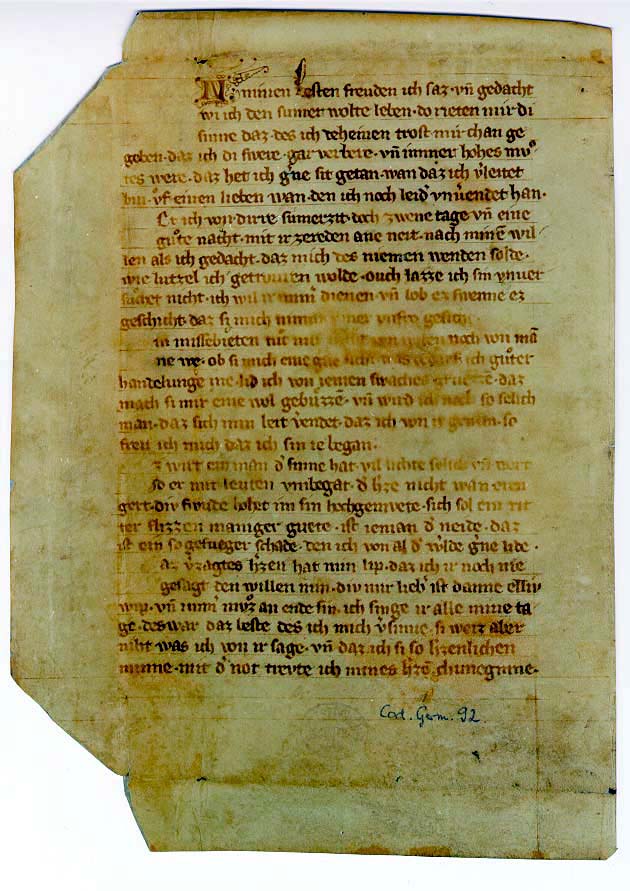 N minen besten freuden ich saz · vn̄ gedacht
wi ich den sumer wolte leben · do rieten mir di
sinne daz · des ich deheinen trost mir chan ge
geben · daz ich di swere gar verbere · vn̄ immer hohes mvͦ
tes were · daz het ich gˀne sit getan · wan daz ich vˀleitet
bin · vf einen lieben wan · den ich noch leidˀ vnvˀendet han ·
Et ich von dirre sumerzit · doch zwene tage vn̄ eine
guͦte nacht · mit ir zereden ane neit · nach minē wil
len als ich gedacht · daz mich des niemen wenden solde ·
wie lutzel ich getrouren wolde · ouch lazze ich sin vnver
suͦchet nicht · ich wil ir immˀ dienen · vn̄ lob ez swenne ez
geschicht · daz si mich
in missebieten noch von mā
ne we · ob si mich eine ich guͦter
handelunge me · lid ich von iemen swaches gruezze · daz
mach si mir eine wol gebuzzē · vn̄ wird ich noch so selich
man · daz sich min leit vˀendet · daz ich von ir gewan · so
freu ich mich daz ich sin ie began ·
z wirt ein man dˀ sinne hat · vil lichte selich vn̄ wert
so er mit leuten vmbegat · dˀ hˀze nicht wan eren
gert · div freude hohet im sin hochgemuete · sich sol ein rit
ter flizzen maniger guete · ist ieman dˀ neide · daz
ist ein so gefueger schade · den ich von al dˀ wˀlde gˀne lide ·
az vˀzagtes hˀzen hat min lip · daz ich ir noch nie
gesagt den willen min · div mir liebˀ ist danne elliv
wip · vn̄ immˀ mvͦz an ende sin · ich singe ir alle mine ta
ge · deswar daz leste des ich mich vˀsinne · si weiz aber
niht was ich von ir sage · vn̄ daz ich si so hˀzenlichen
minne · mit dˀ not treute ich mines hˀzē chuneginne ·
Cod. Germ. 92.